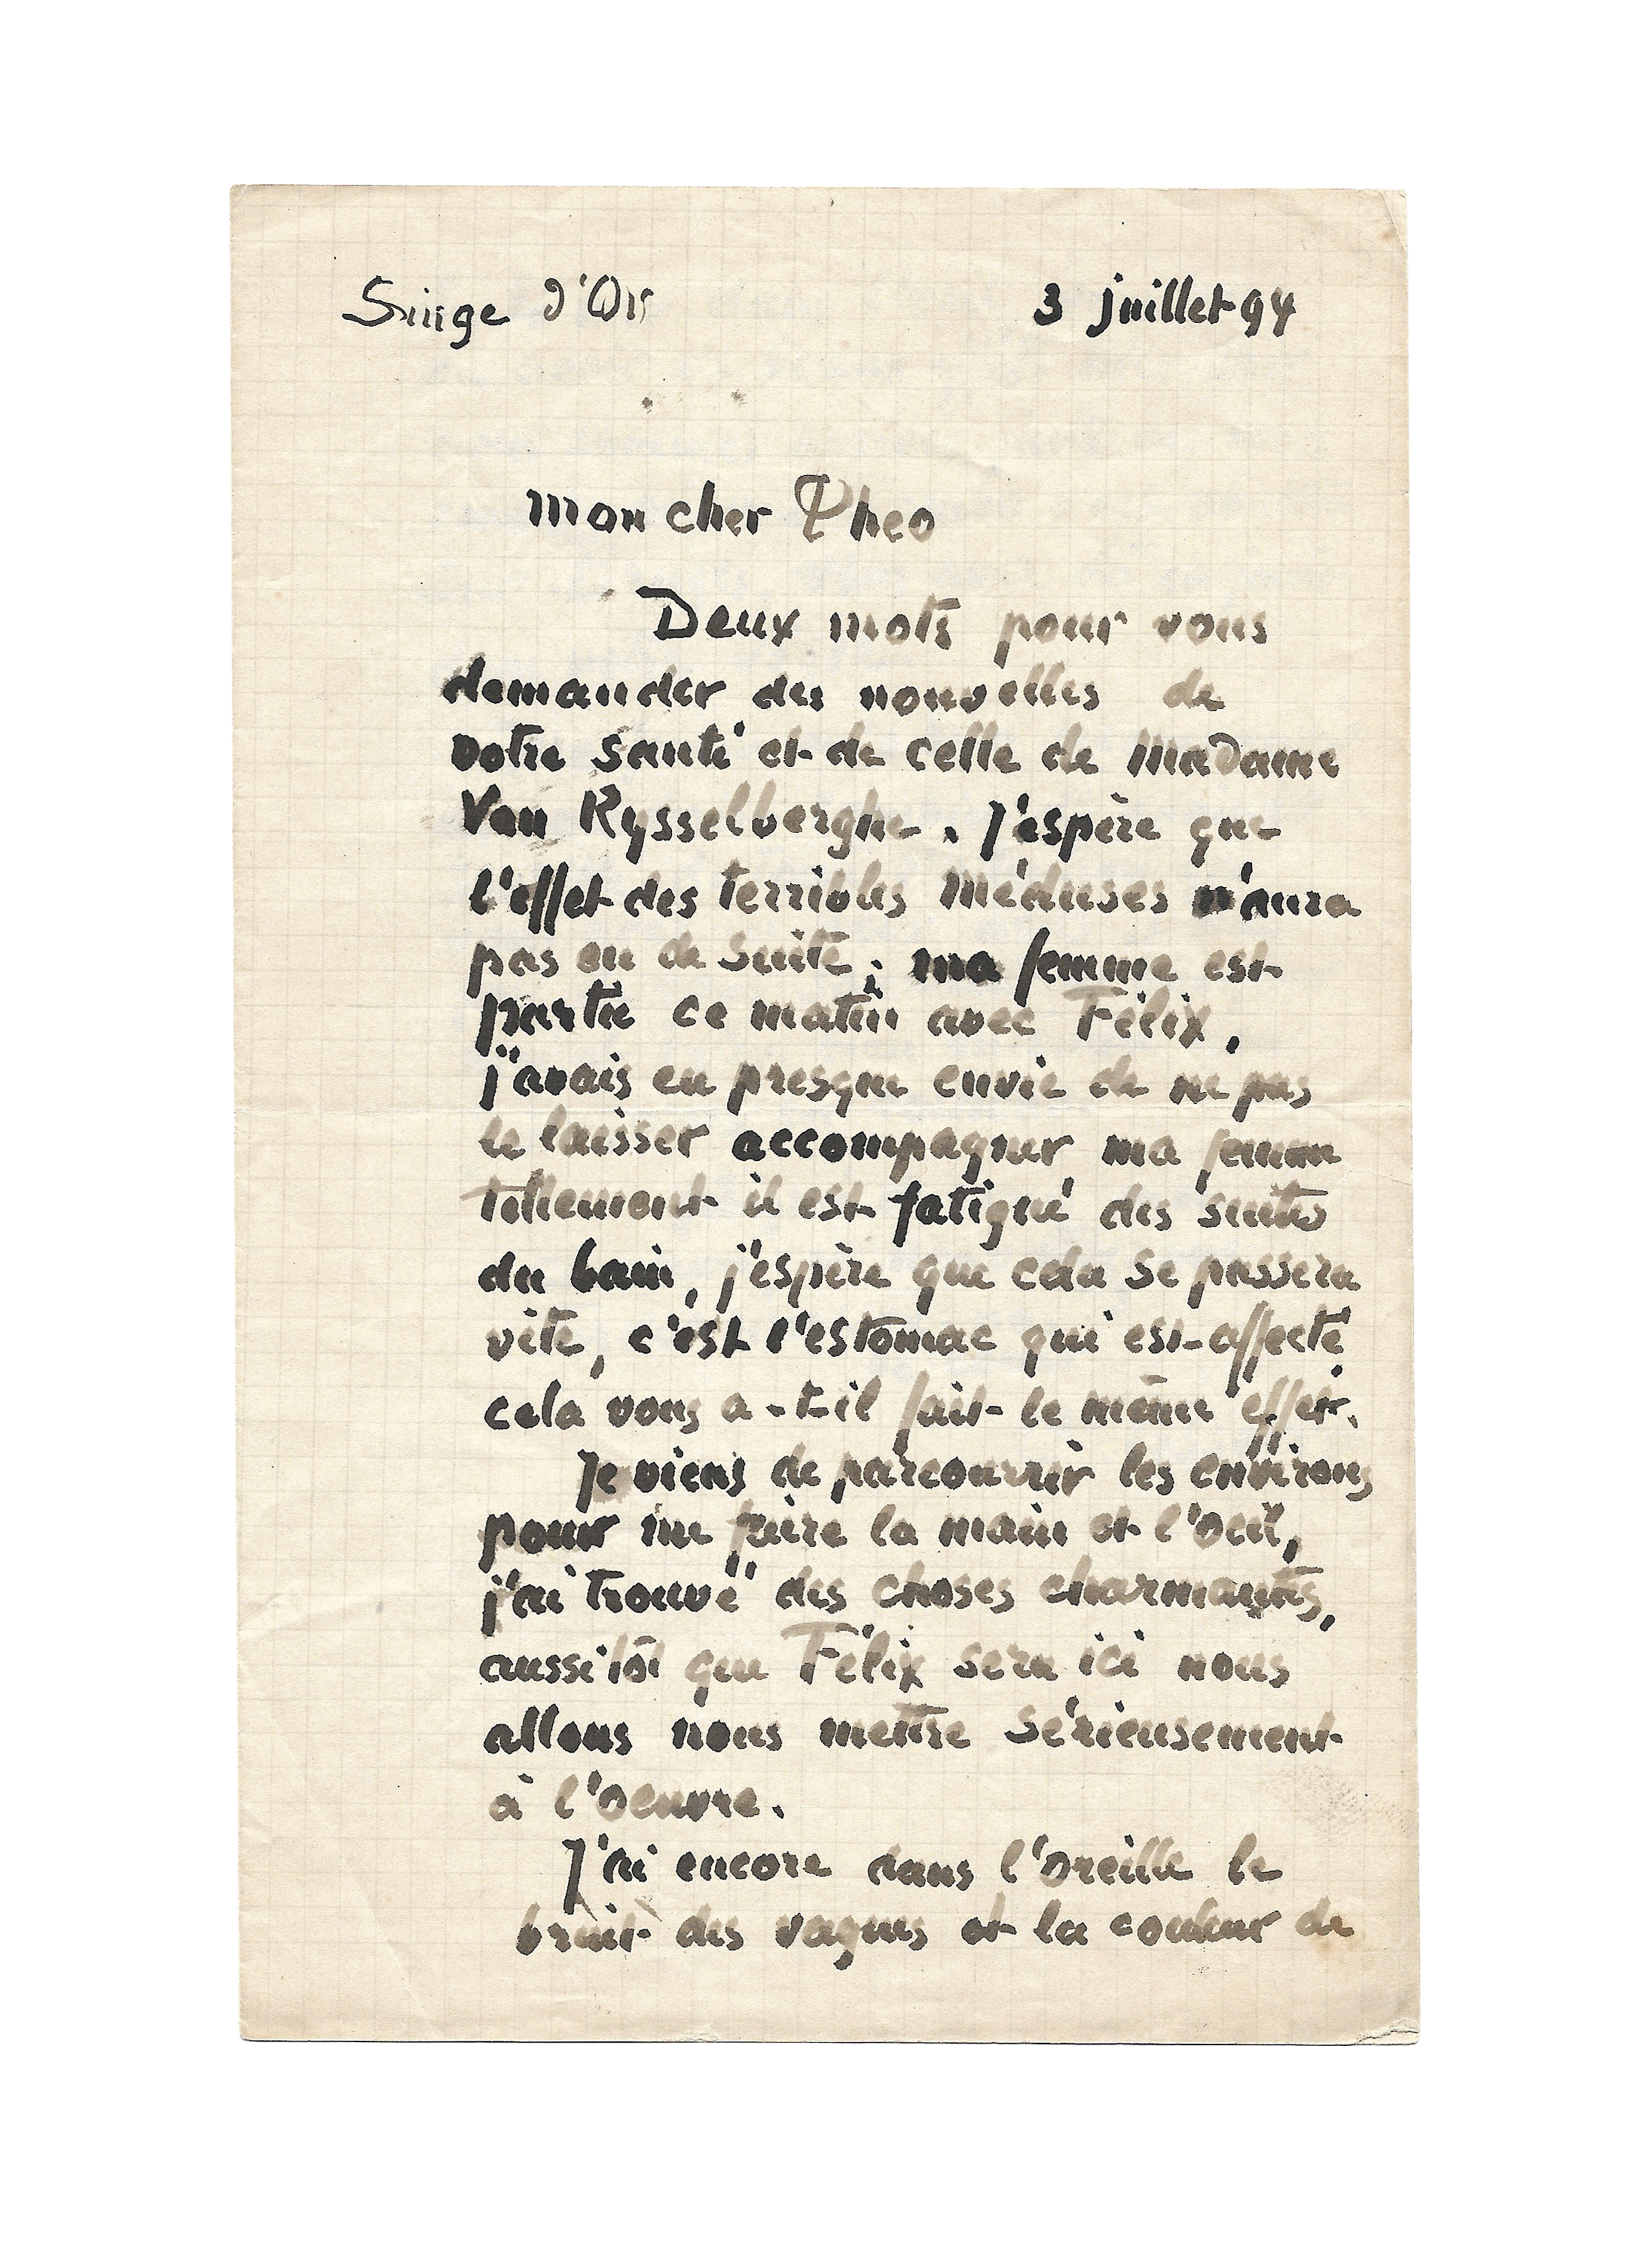 Singe d'Or 3 juillet 94
mon cher Theo
Deux mots pour vous
demander des nouvelles de
votre santé et de celle de Madame
Van Rysselberghe. J'espère que
l'effet des terribles méduses n'aura
pas eu de suite; ma femme est
partie ce matin avec Félix,
j'avais eu presque envie de ne pas
le laisser accompagner ma femme
tellement il est fatigué des suites
du bain, j'espère que cela se passera
vite, c'est l'estomac qui est affecté,
cela vous a-t-il fait le même effet.
Je viens de parcourrir les environs
pour me faire la main et l'oeil,
j'ai trouvé des choses charmantes,
aussitôt que Félix sera ici nous
allons nous mettre sérieusement
à l'oeuvre.
J'ai encore dans l'oreille le
bruit des vagues et la couleur de